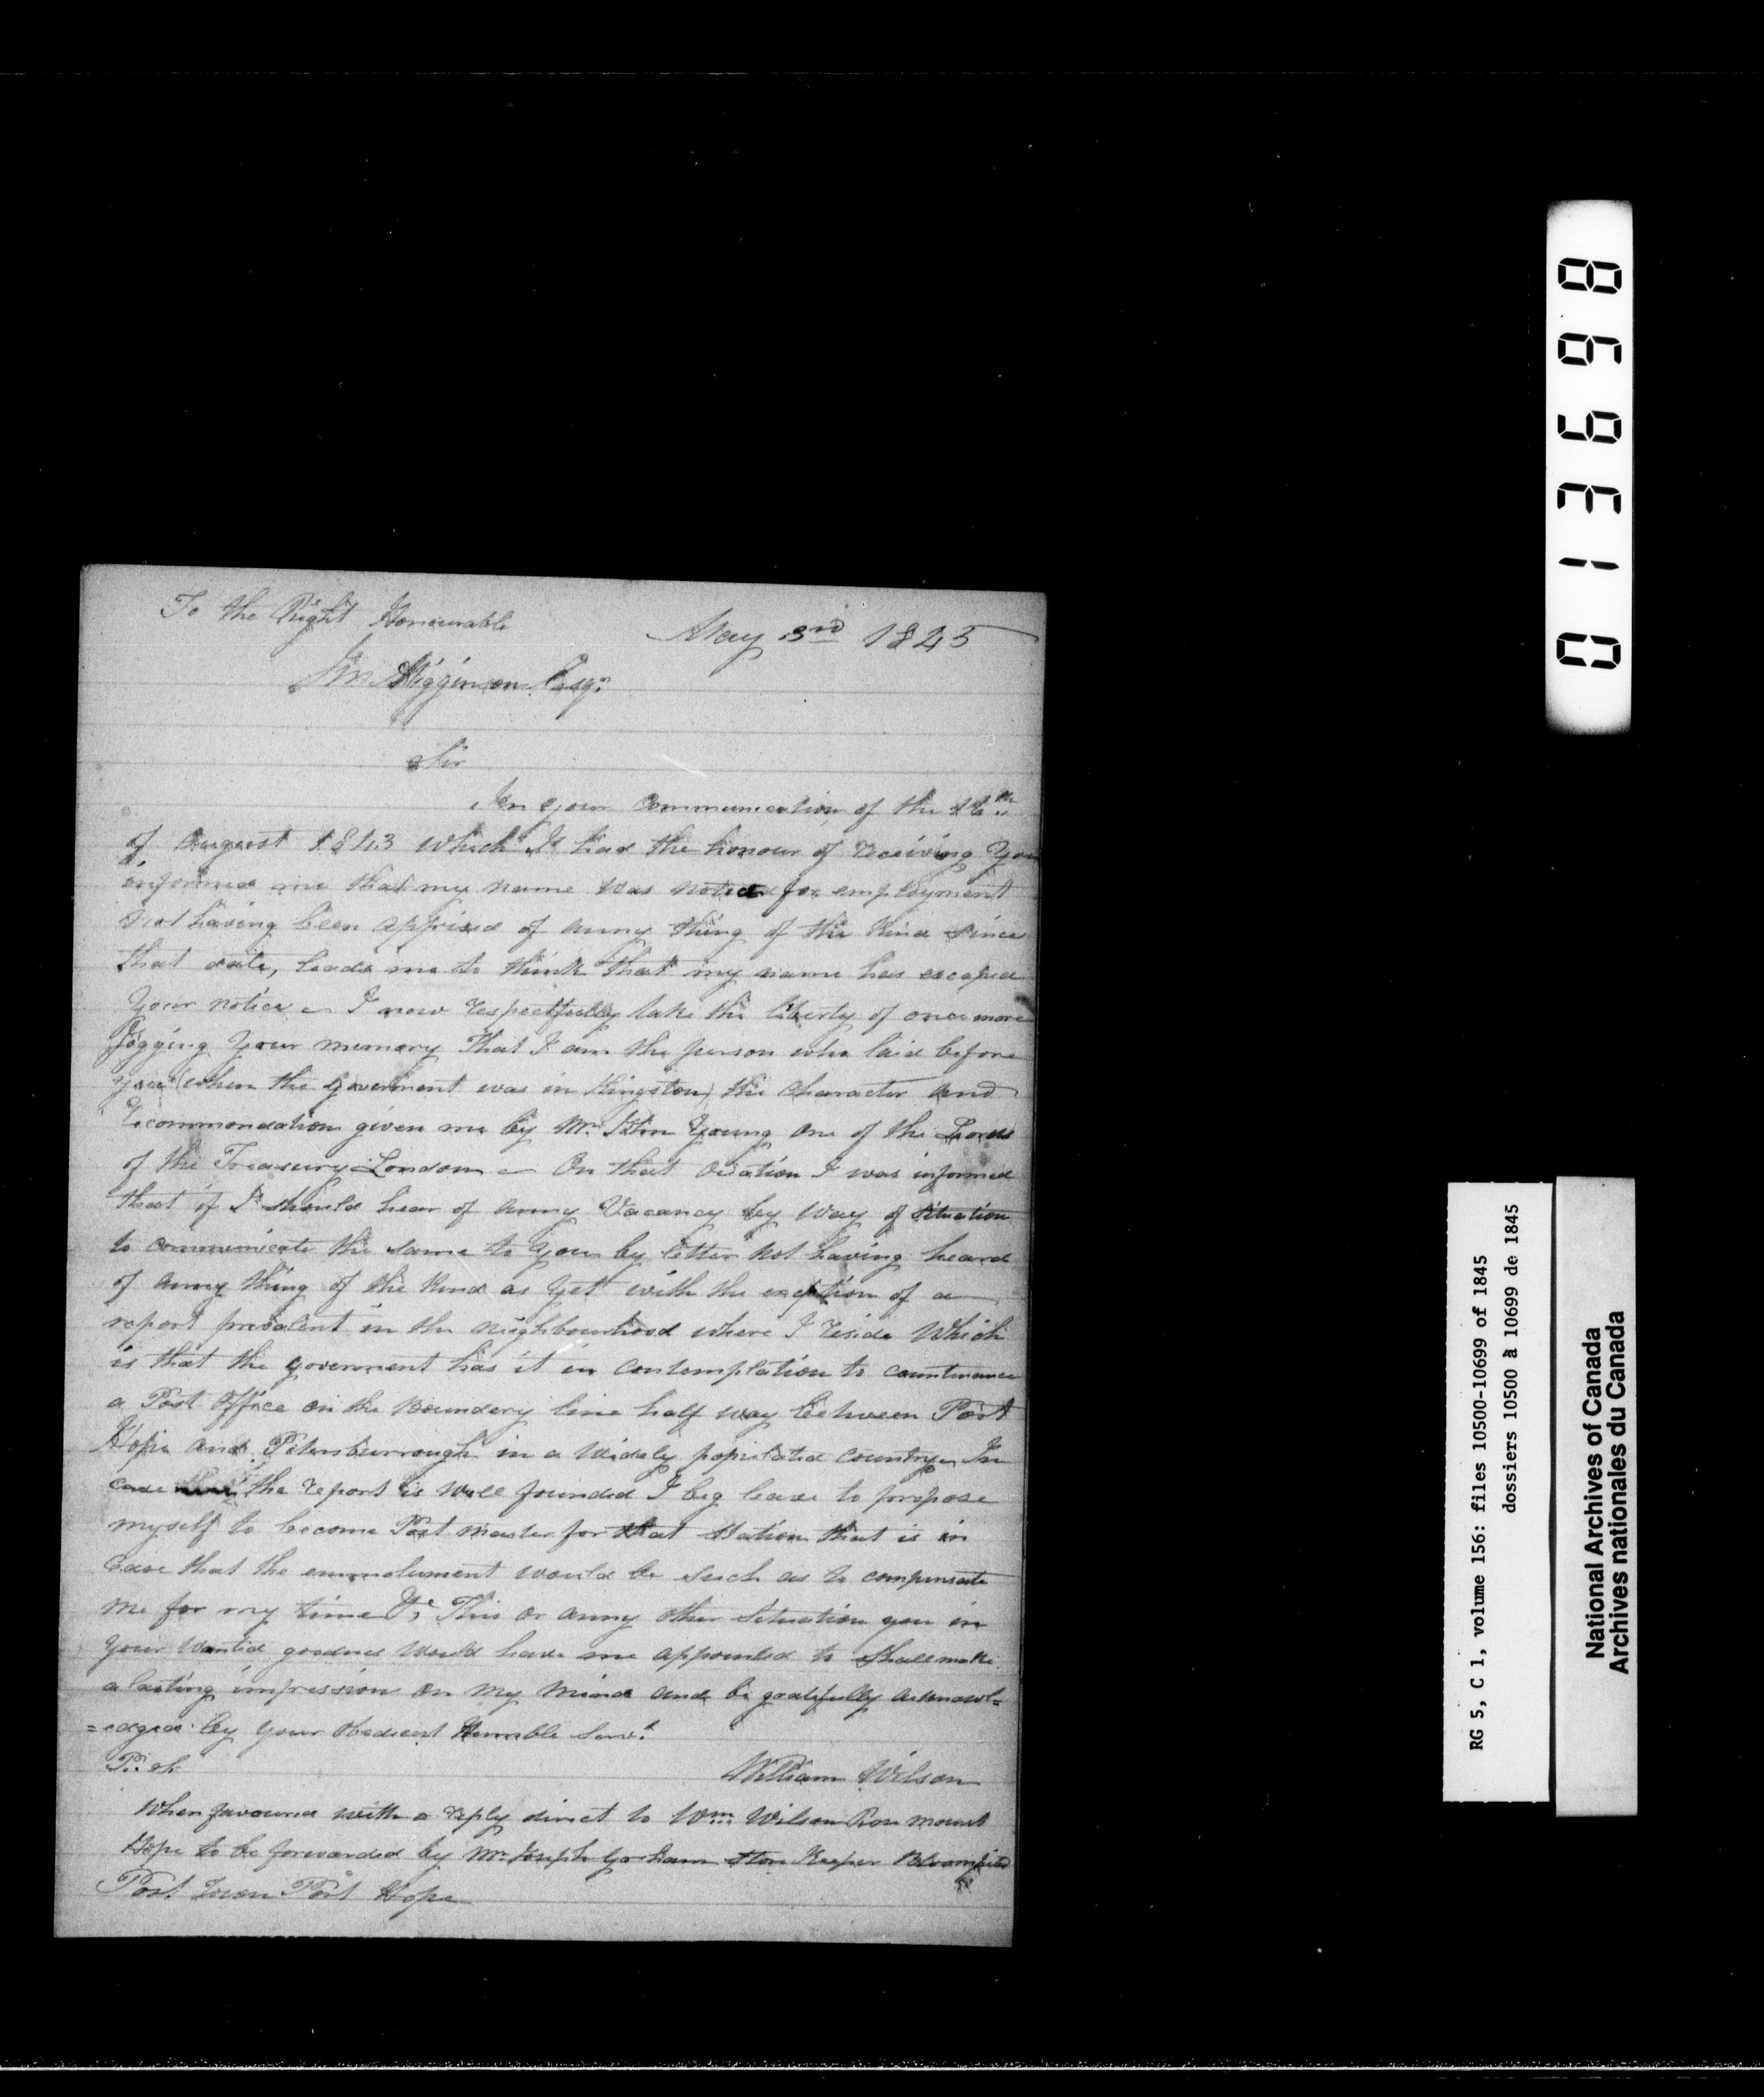 To the Right Honourable
May 3rd 1845
Higginson Esqr
Sir
In your Communication of the
of August 1843 which I had the honour of receiving You
informed me that my name was noted for employment
not having been apprised of anny thing of the Kind since
that date, leads me to think that my name has escaped
Your notice - I now respectfully take the liberty of once more
Jogging Your memory That I am the person who laid before
you (when the goverment was in Kingston) the Character and
Recommendation given me by Mr. John Young one of the Lords
of the Treasury London - On that I was informed
that if I should hear of anny Vacancy by way of Situation
to communicate the same to you by letter not having heard
of anny thing of the Kind as yet with the exception of a
report prevalent in the neighbourhood where I reside Which
is that the goverment has it in contemplation to countinance
a Post Office on the Boundery line half way between Port
Hope and Petersburrough in a Widely populated country - In
case the report is well founded I beg leave to propose
myself to become Post master for that Station that is in
Case that the emmolument would be such as to compensate
me for my time &c, This or anny other Situation you in
Your wonted goodness would have me appointed to shall make
a lasting impression on my mind and be gratefully acknowl=
=edged by your Obedient Humble Servt
William Wilson
when favoured with a reply direct to Wm. Wilson Rose mount
Hope to be forwarded by Mr. Joseph Graham Store Keeper
Post Town Port Hope
013698
RG 5, C 1, volume 156: files 10500-10699 of 1845
dossiers 10500 à 10699 de 1845
National Archives of Canada
Archives nationales du Canada